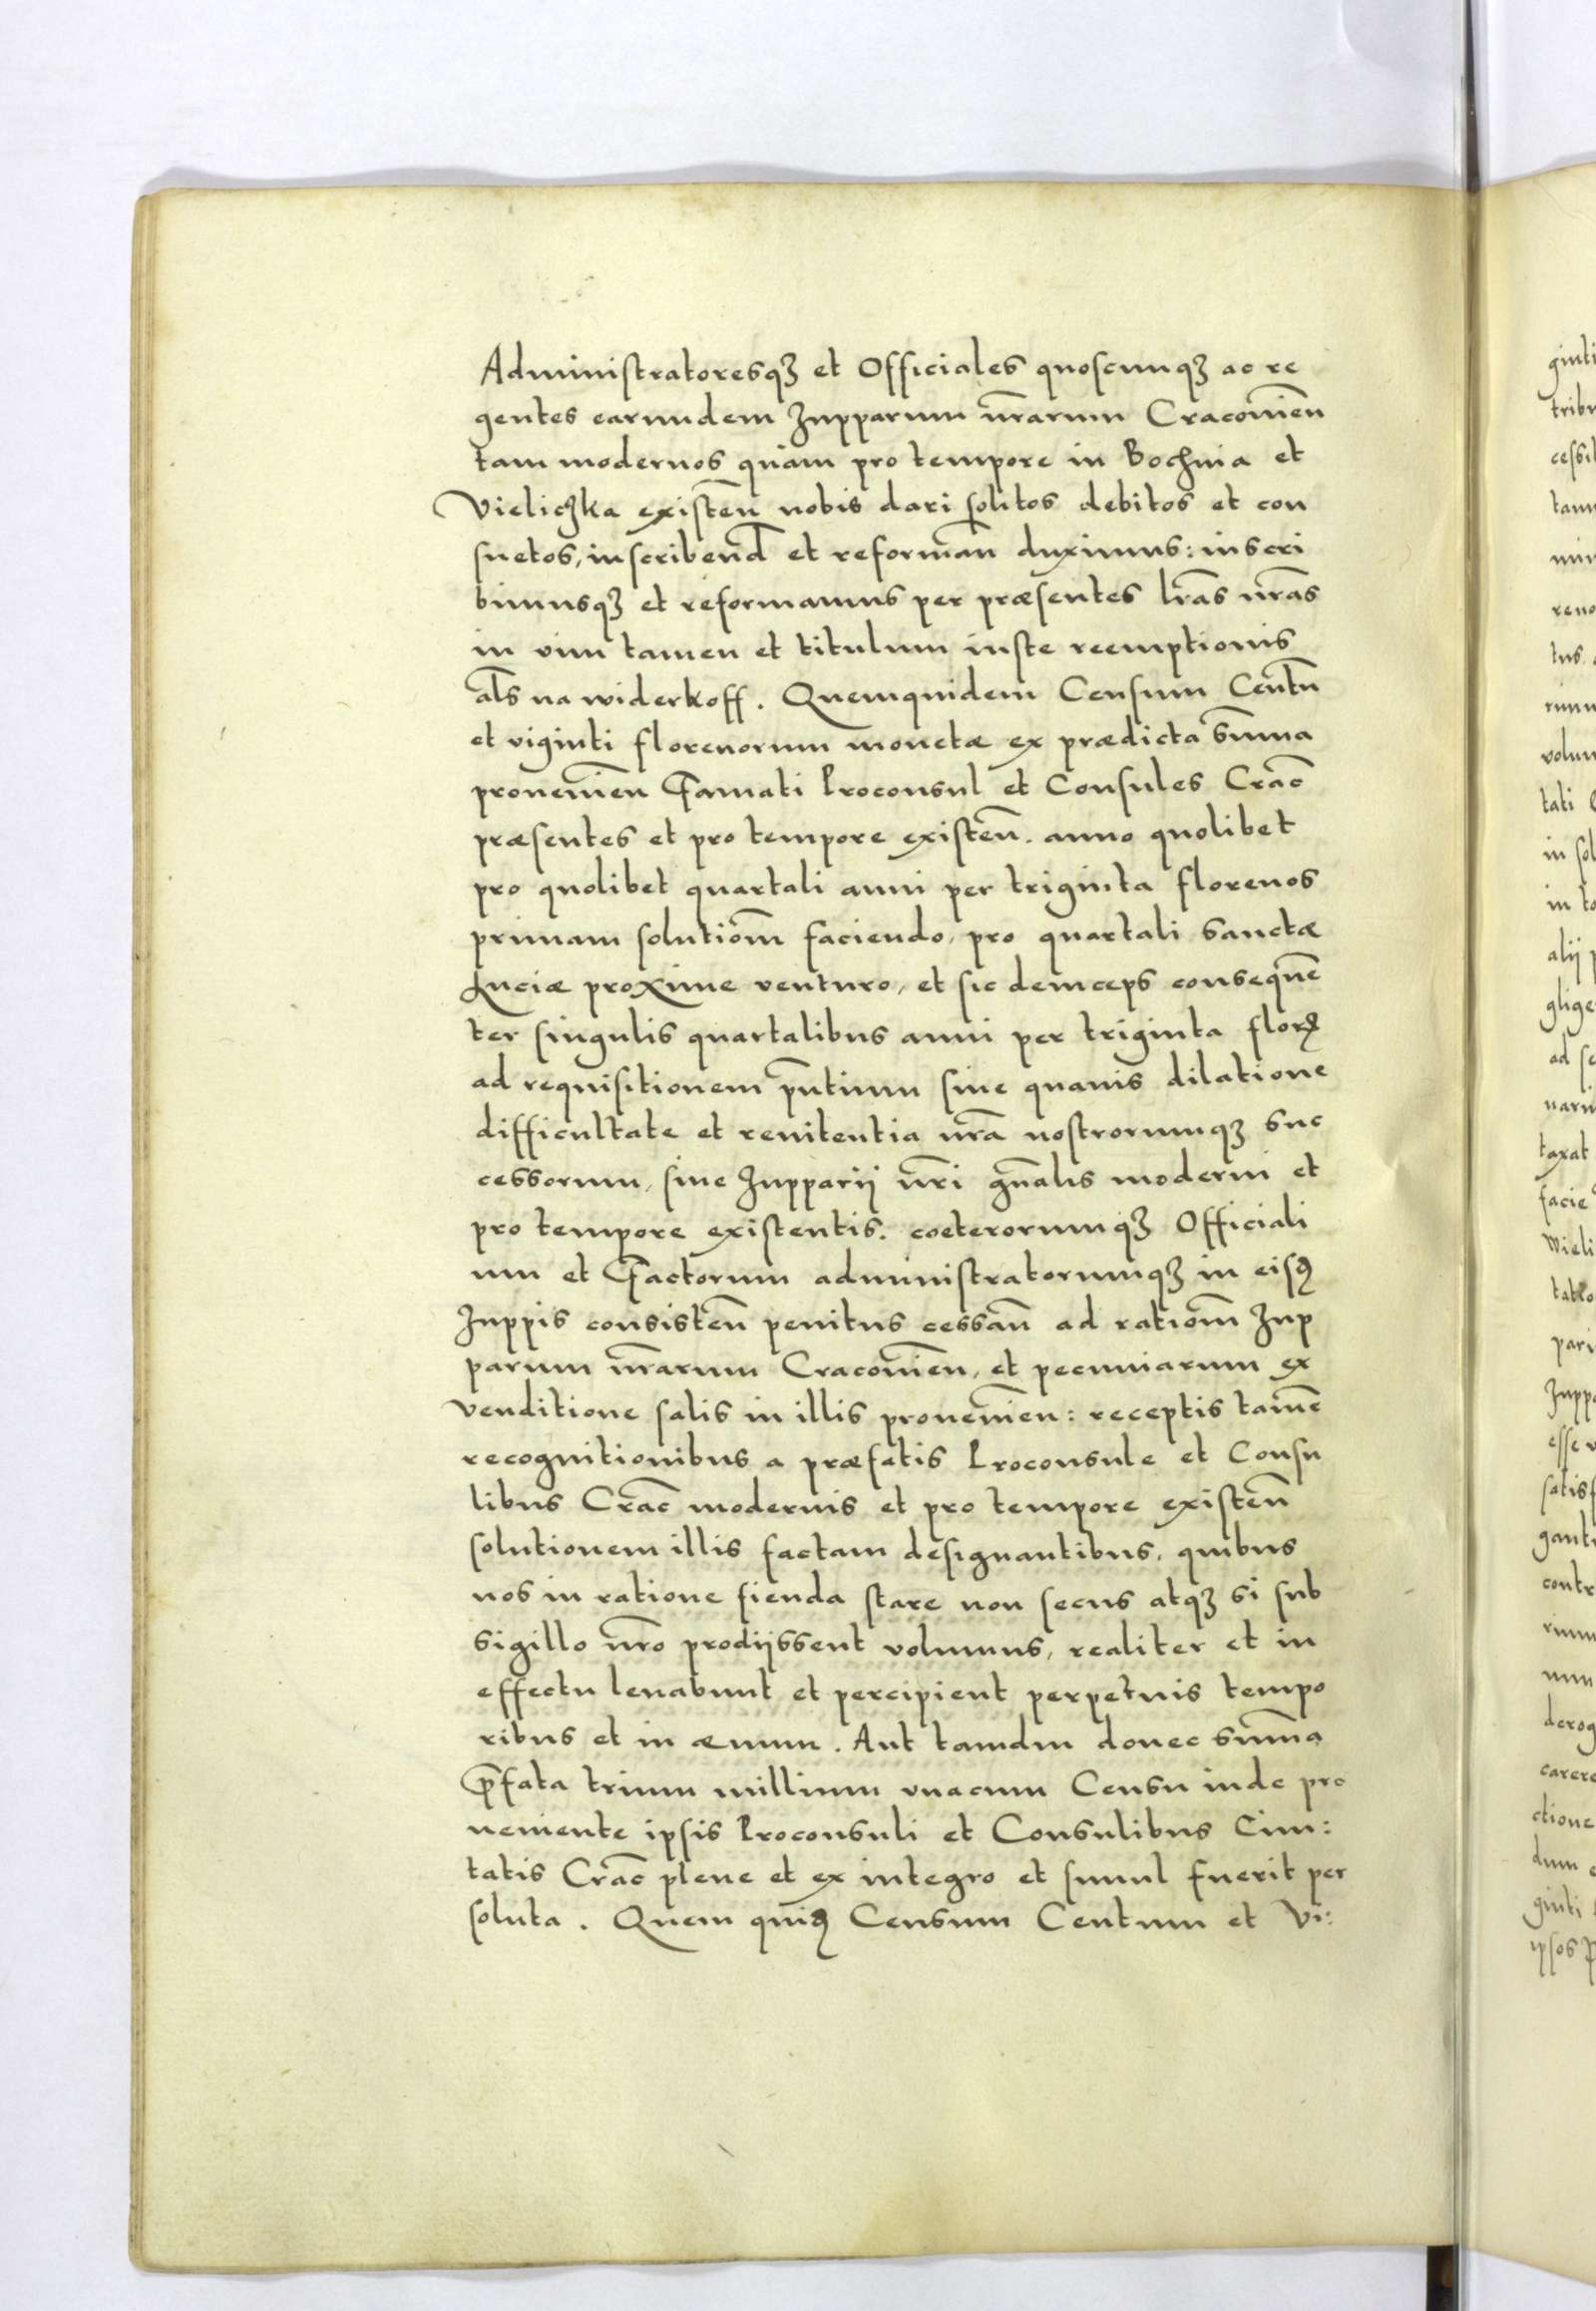 Administratoresqꝫ et Officiales quoscunqꝫ ac re
gentes earundem Zupparum nr̃arum Cracovien̄
tam modernos quàm pro tempore in Bochnia et
Vieliczka existen̄ nobis dari solitos debitos et con
suetos, inscribend̄ et reforman̄ duximus: inscri
bimusqꝫ et reformamus per præsentes lr̃as nr̃as
in vim tamen et titulum iuste reemptionis
al̃s na widerkoff. Quemquidem Censum Centu̅
et viginti florenorum monetæ ex prædicta Sum̃a
provenien̄ Famati Proconsul et Consules Crac̄
præsentes et pro tempore existen̄. anno quolibet
pro quolibet quartali anni per triginta florenos
primam solutiom̄ faciendo, pro quartali Sanctæ
Luciæ proxime venturo, et sic deinceps conseque̅
ter singulis quartalibus anni per triginta florꝫ
ad requisitionem p̄ntium sine quavis dilatione
difficultate et renitentia nr̃a nostrorumqꝫ suc
cessorum, sive Zupparij nr̃i gn̄alis moderni et
pro tempore existentis. coeterorumqꝫ Officiali
um et Factorum administratorumqꝫ in eisꝫ
Zuppis consisten̄ penitus cessan̄ ad ratiom̄ Zup
parum nr̃arum Cracovien̄, et pecuniarum ex
venditione salis in illis provenien̄: receptis tame̅
recognitionibus a præfatis Proconsule et Consu
libus Crac̄ modernis et pro tempore existen̄
solutionem illis factam designantibus, quibus
nos in ratione fienda stare non secus atqꝫ si sub
sigillo nr̃o prodijssent volumus, realiter et in
effectu levabunt et percipient perpetuis tempo
ribus et in ævum. Aut tamdiu donec sum̃a
p̄fata trium millium unacum Censu inde pro
veniente ipsis Proconsuli et Consulibus Civi:
tatis Crac̄ plene et ex integro et simul fuerit per
soluta. Quem quiꝫ Censum Centum et Vi: